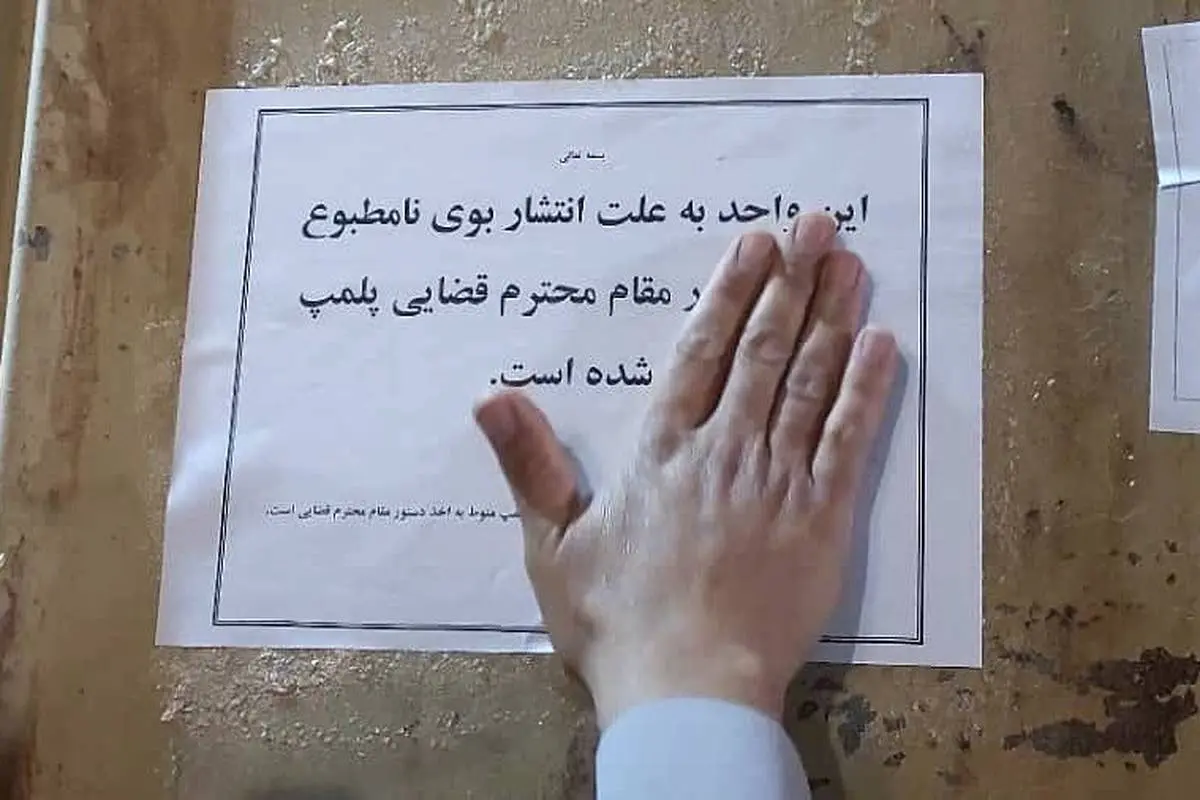 بسمه تعالی
این واحد به علت انتشار بوی نامطبوع
مقام محترم قضایی پلمپ
شده است.
منوط به اخذ دستور مقام محترم قضایی است.